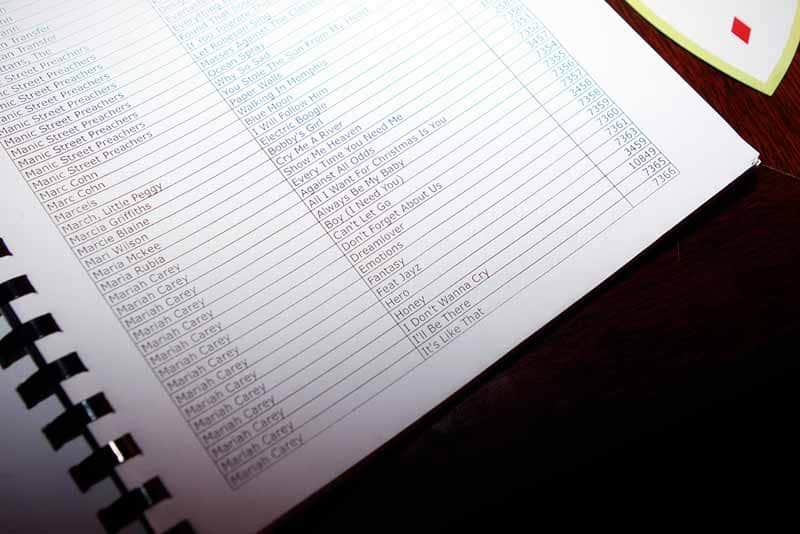 Transfer
Transfer
The
Street Preachers
Manic Street Preachers If You Tolerate
Manic Street Preachers Let Robeson Sing
Manic Street Preachers Masses Against The
Manic Street Preachers Ocean Spray
Manic Street Preachers Why So Sad
Manic Street Preachers You Stole The Sun From My Heart
Marc Cohn Paper Walls
Marc Cohn Walking In Memphis
Marcels Blue Moon
March, Little Peggy I Will Follow Him
Marcia Griffiths Electric Boogie
Marcie Blaine Bobby's Girl
Mari Wilson Cry Me A River
Maria McKee Show Me Heaven
Maria Rubia Every Time You Need Me
Mariah Carey Against All Odds
Mariah Carey All I Want For Christmas Is You
Mariah Carey Always Be My Baby 7354
Mariah Carey Boy (I Need You)
Mariah Carey Can't Let Go 7357
Mariah Carey Don't Forget About Us 3458
Mariah Carey Dreamlover 7358
Mariah Carey Emotions 7359
Mariah Carey Fantasy 7360
Mariah Carey Feat Jayz 7361
Mariah Carey Hero 7363
Mariah Carey Honey 3459
Mariah Carey I Don't Wanna Cry 10849
Mariah Carey I'll Be There 7365
Mariah Carey It's Like That 7366